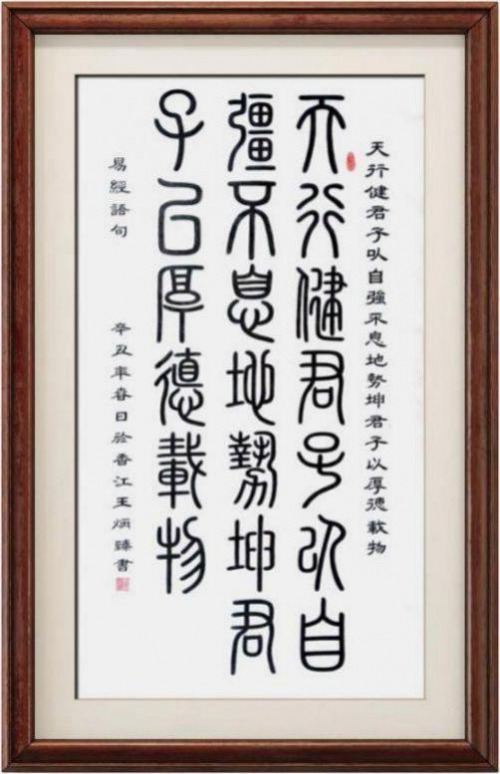 天行健君子㕥自強不息地勢坤君子以厚德載物
天行健君子以自
彊不息地勢坤君
子㠯厚德載物
易經語句
辛丑年春日於香江王炳臻書